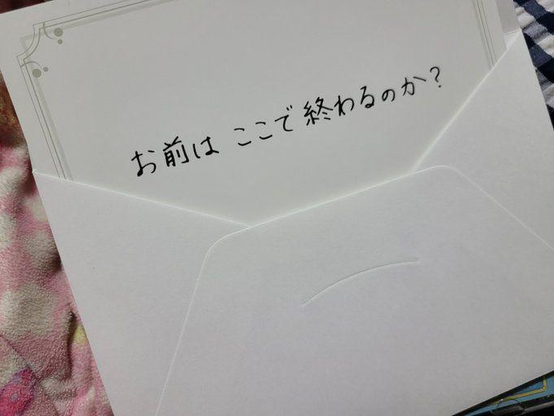 お前は ここで 終わるのか?